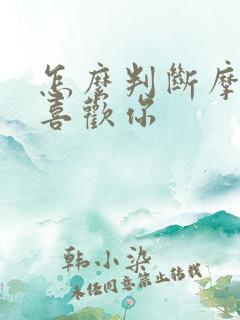 怎麼判斷摩
喜歡你
韩小染
未经同意禁止转载